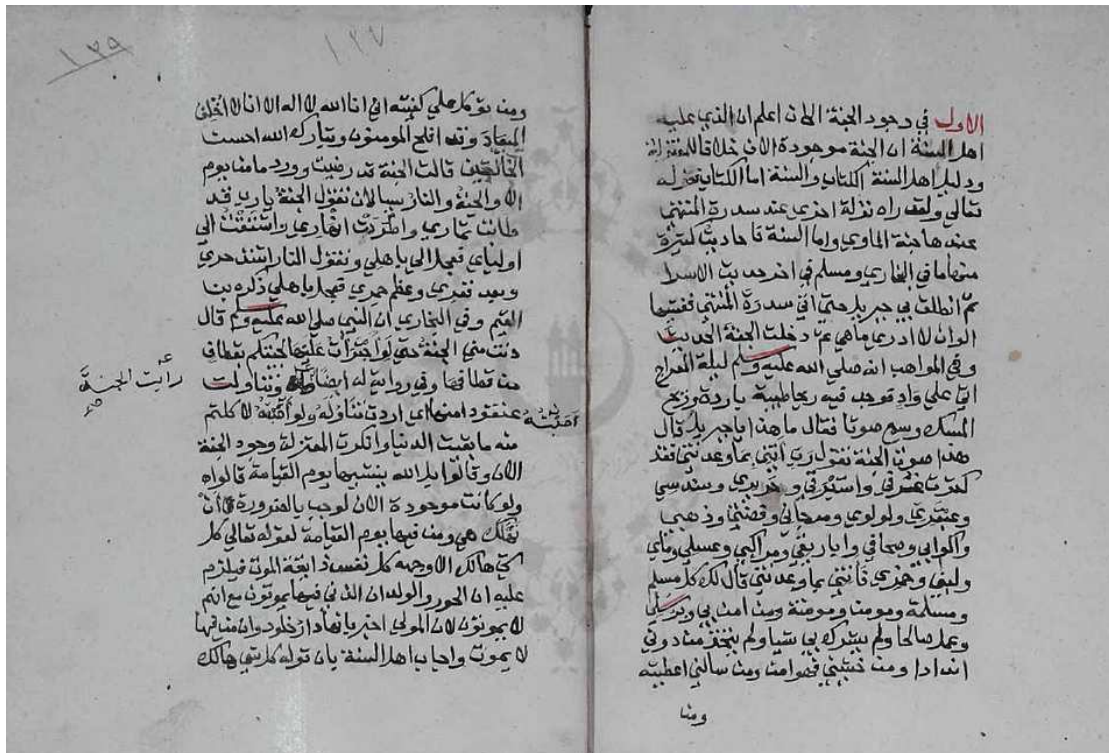 الاول في وجود الجنة الان اعلم ان الذي عليه
اهل السنة ان الجنة موجودة الان خلافا للمعتزلة
ودليل اهل السنة الكتاب والسنة اما الكتاب فقوله
تعالى ولقد راه نزلة اخرى عند سدرة المنتهى
عندها جنة الماوى واما السنة فاحاديث كثيرة
منها ما في البخاري ومسلم في اخر حديث الاسرا
ثم انطلق بي جبريل حتى اتى سدرة المنتهى فغشيها
الوان لا ادري ما هي ثم دخلت الجنة الحديث
وفي المواهب انه صلى الله عليه وسلم ليلة المعراج
اتى على واد فوجد فيه ريحا طيبة باردة وريح
المسك وسمع صوتا فقال ما هذا يا جبريل قال
هذا صوت الجنة تقول رب اتني بما وعدتني فقد
كثرت غرفي واستبرقي وحريري وسندسي
وعبقري ولولوي ومرجاني وفضتي وذهبي
واكوابي وصحافي واباريقي ومراكبي وعسلي ومائي
ولبني وخمري فاتني بما وعدتني قال لك كل مسلم
ومسلمة ومومن ومومنة ومن امن بي وبرسلي
وعمل صالحا ولم يشرك بي شيا ولم يتخذ من دوني
اندادا ومن خشيني فهو امن ومن سالني اعطيته
ومن
١٢٩
١٢٧
ومن توكل علي كفيته اني انا الله لا اله الا انا لا اخلف
الميعاد وقد افلح المومنون وتبارك الله احسن
الخالقين قالت الجنة قد رضيت وورد ما من يوم
الا والجنة والنار يسالان تقول الجنة يا رب قد
طابت ثماري واطردت انهاري واشتقت الى
اوليائي فعجل الي باهلي وتقول النار اشتد حري
وبعد قعري وعظم جمري فعجل باهلي ذكره بن
القيم وفي البخاري ان النبي صلى الله عليه وسلم قال
دنت مني الجنة حتى لو اجترات عليها لجئتكم بقطاف
من قطافها وفي رواية له ايضا وتناولت
رايت الجنة
عنقودا منها اي اردت تناوله ولو اصبته لا كلتم
اصبته
منه ما بقيت الدنيا وانكرت المعتزلة وجود الجنة
الان وقالوا بل الله ينشيها يوم القيامة قالوا
ولو كانت موجودة الان لوجب بالضرورة ان
تهلك هي ومن فيها يوم القيامة لقوله تعالى كل
شي هالك الا وجهه كل نفس ذايقة الموت فيلزم
عليه ان الحور والولدان الذي فيها يموتون مع انهم
لا يموتون لان المولى اخبر بانها دار خلود وان من فيها
لا يموت واجاب اهل السنة بان قوله كل شي هالك